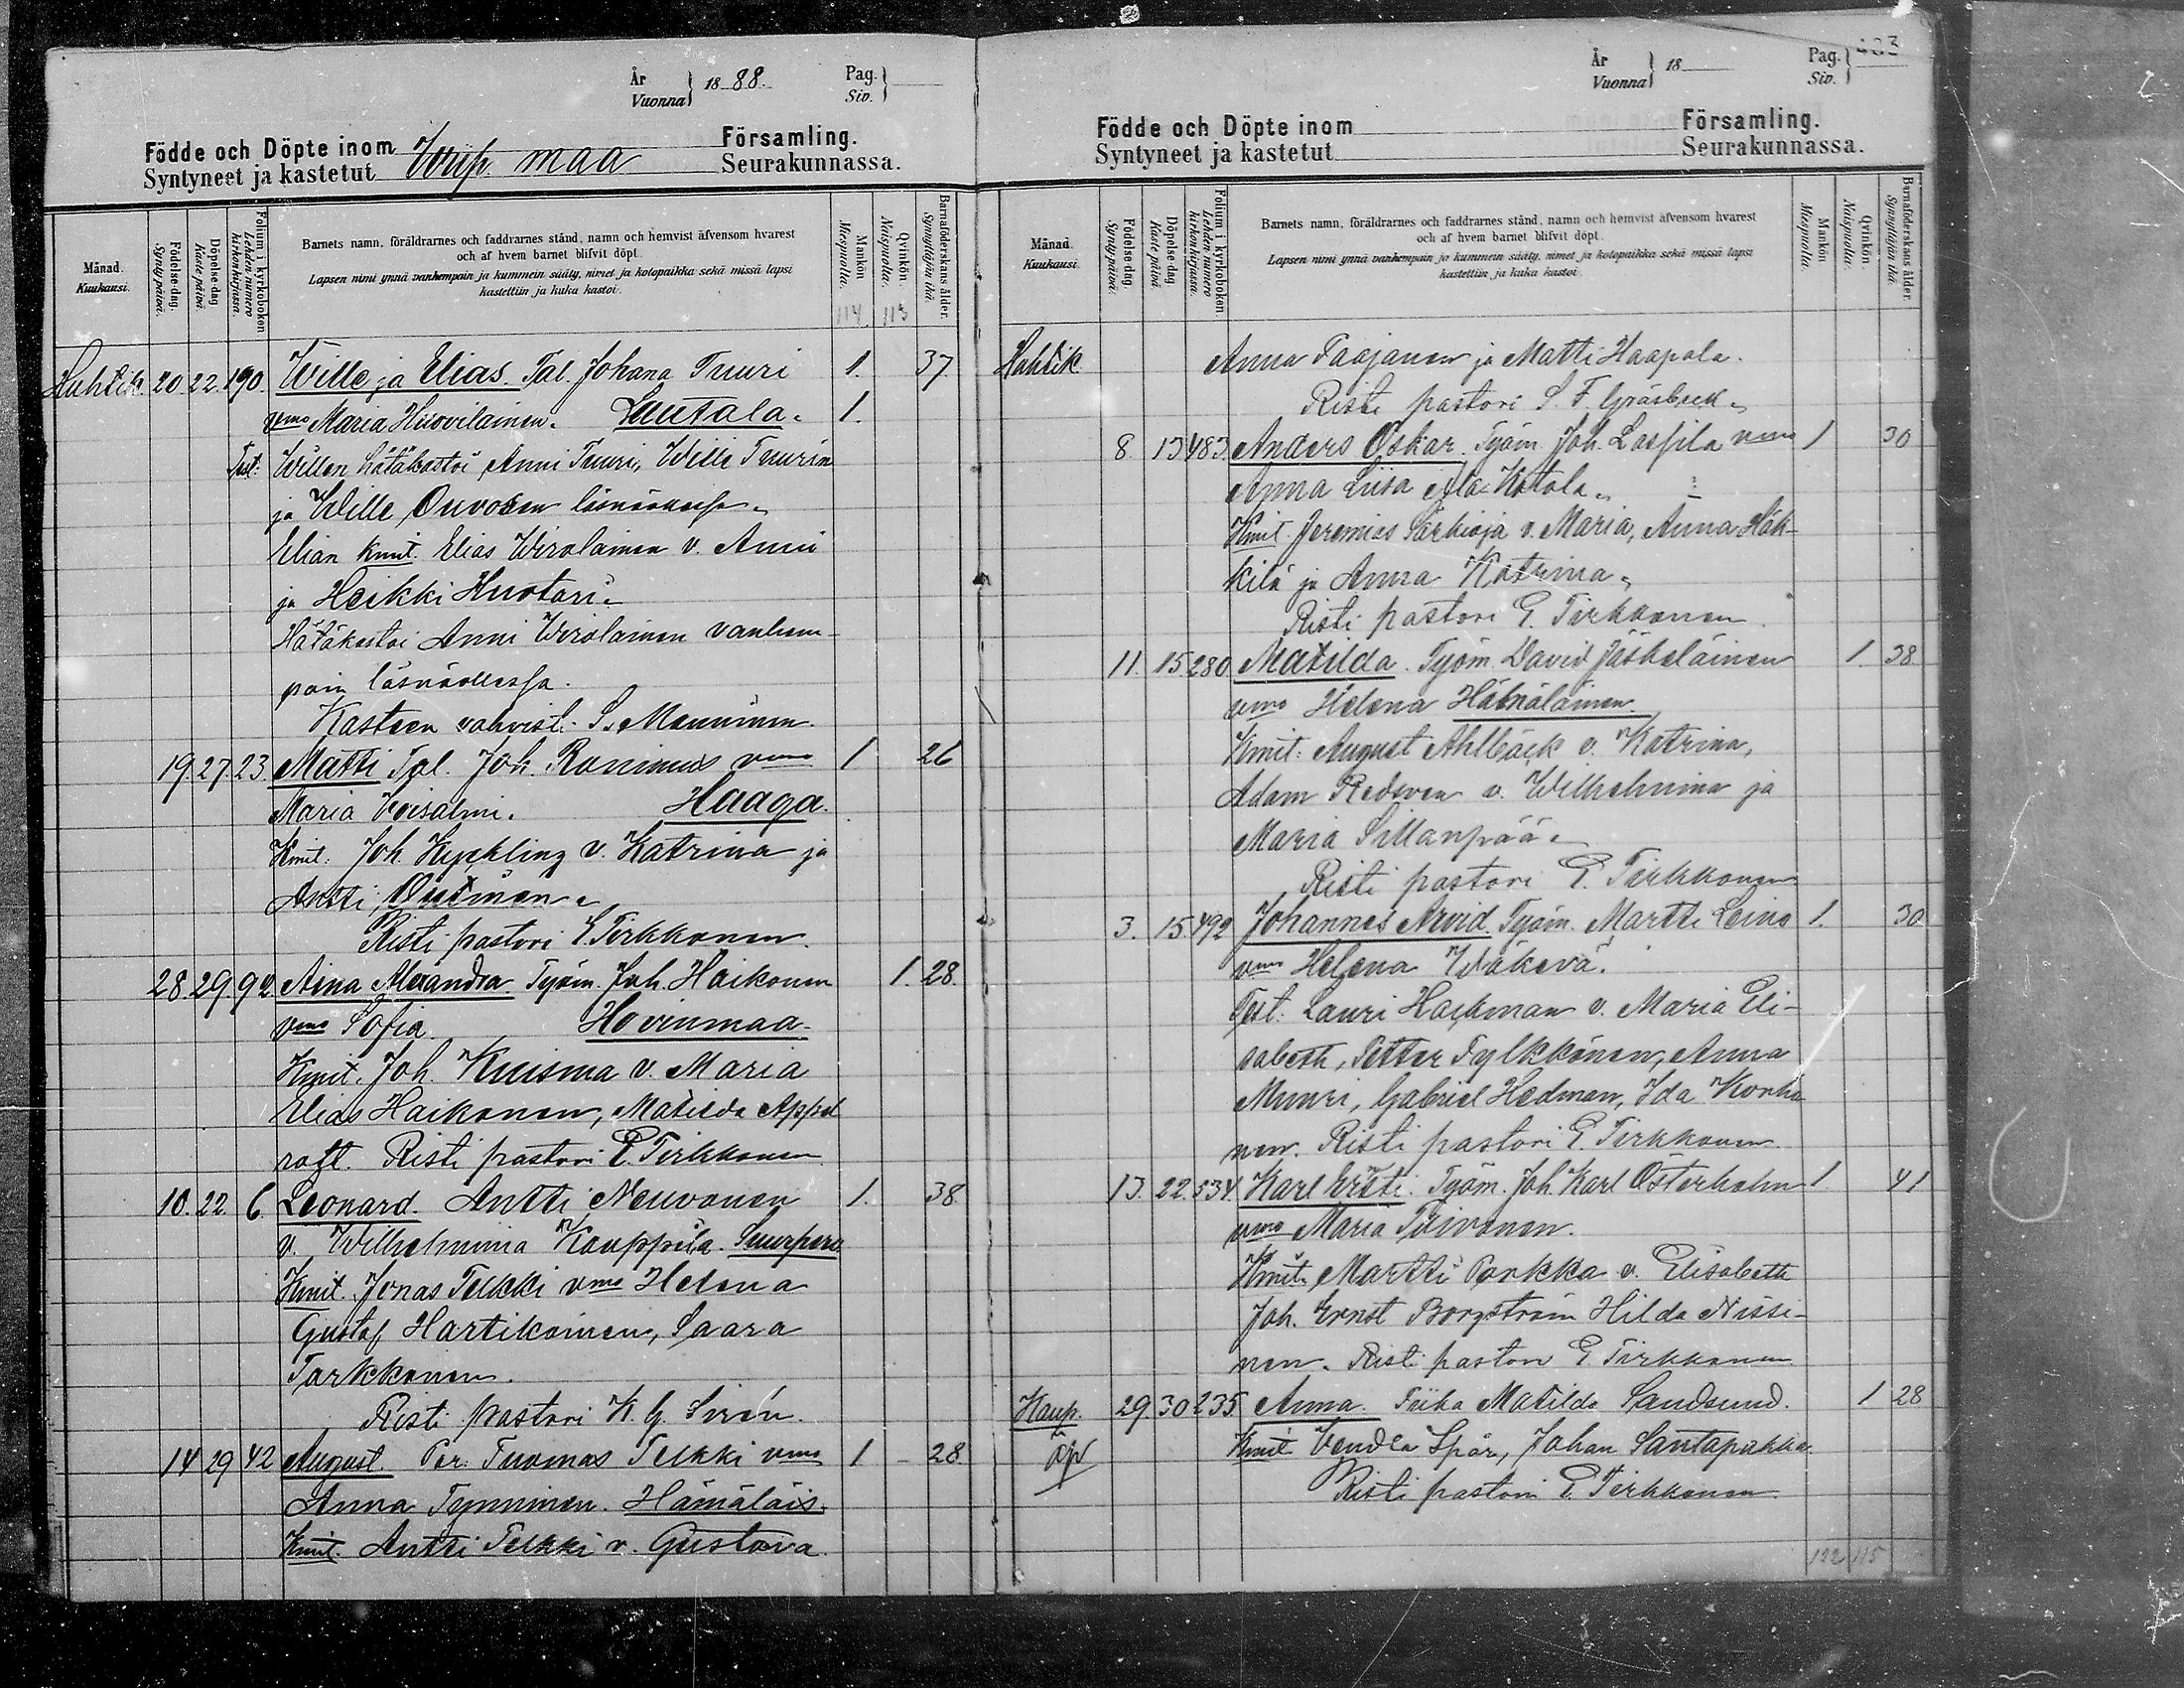 År Vuonna 1888. Pag. Siv.
Födde och Döpte inom Församling.
Syntyneet ja kastetut Wiip. maa Seurakunnassa.
Månad. Kuukausi.
Födelse dag. Synty päivä.
Döpelse dag. Kaste päivä.
Folium i kyrkoboken Lehden numero kirkonkirjassa.
Barnets namn, föräldrarnes och faddrarnes stånd, namn och hemvist äfvensom hvarest
och af hvem barnet blifvit döpt.
Lapsen nimi ynnä vanhempain ja kummein sääty, nimet ja kotopaikka sekä missä lapsi
kastettiin ja kuka kastoi.
Mankön Miespuolia. 114.
Qvinkön. Naispuolia. 113
Barnaföderskans ålder. Synnyttäjän ikä.
Huhtik. 20. 22. 190. Wille ja Elias. Tal. Johana Tuuri 1. 37.
vmo Maria Huovilainen. Lautala. 1.
Test: Willen hätäkastoi Anni Tuuri, Wille Tuurin
ja Wille Ouvosen läsnäollessa.
Elian kmit. Elias Wirolainen v. Anni
ja Heikki Huotari.
Hätäkastoi Anni Wirolainen vanhem-
pain läsnäollessa.
Kasteen vahvist. S. Manninen.
19. 27. 23. Matti Tal. Joh. Ronimus vmo 1 26
Maria Voisalmi. Haaga.
Kmit. Joh. Kyckling v. Katrina ja
Antti Outinen.
Risti pastori E. Tirkkonen.
28. 29. 92. Aina Alexandra. Työm. Joh. Haikonen 1. 28.
vmo Sofia. Hovinmaa.
Kmit. Joh. Kuisma v. Maria
Elias Haikonen, Matilda Appel
roft. Risti pastori E. Tirkkonen
10. 22. 6. Leonard. Antti Neuvonen 1. 38
v. Wilhelmina Kauppila. Suurpero
Kmit. Jonas Telkki vmo Helena
Gustaf Hartikainen, Saara
Tarkkonen.
Risti pastori K. G. Sirén.
14 29 42 August. Por. Tuomas Telkki vmo 1 28
Anna Tynninen. Hämäläis.
Kmit. Antti Telkki v. Gustava.
År Vuonna 18 Pag. Siv. 403
Födde och Döpte inom Församling.
Syntyneet ja kastetut Seurakunnassa.
Månad. Kuukausi.
Födelse dag. Synty päivä.
Döpelse dag. Kaste päivä.
Folium i kyrkoboken Lehden numero kirkonkirjassa.
Barnets namn, föräldrarnes och faddrarnes stånd, namn och hemvist äfvensom hvarest
och af hvem barnet blifvit döpt.
Lapsen nimi ynnä vanhempain ja kummein sääty, nimet ja kotopaikka sekä missä lapsi
kastettiin ja kuka kastoi.
Mankön Miespuolia.
Qvinkön. Naispuolia.
Barnaföderskans ålder. Synnyttäjän ikä.
Huhtik. Anna Taajanen ja Matti Haapala.
Risti pastori S. F. Gräsbeck.
8. 13 483. Anders Oskar. Työm. Joh. Lassila vmo 1 30
Anna Liisa Ala-Ketola.
Kmit. Jeremias Särkioja v. Maria, Anna Häk-
kilä ja Anna Katrina.
Risti pastori E. Tirkkonen.
11. 15. 280. Matilda. Työm. David Jäskeläinen 1. 38
vmo Helena Hämäläinen.
Kmit. August Ahlbäck v. Katrina,
Adam Redwen v. Wilhelmina ja
Maria Sillanpää.
Risti pastori E. Tirkkonen
3. 15. 492 Johannes Arvid. Työm. Martti Leino 1. 30
vmo Helena Wäkevä.
Test. Lauri Hackman v. Maria Eli-
sabeth, Petter Tylkkönen, Anna
Muuri, Gabriel Hedman, Ida Korho
nen. Risti pastori E. Tirkkonen
13. 22. 534. Karl Ersti. Työm. Joh. Karl Österholm 1. 41
vmo Maria Toivonen.
Kmit. Martti Parkka v. Elisabeth
Joh. Ernst Borgström Hilda Nissi-
nen. Risti pastori E Tirkkonen
Kaup. 29. 30 235 Anna. Piika Matilda Sandsund. 1 28
äp Kmit Vendla Spår, Johan Santapukka.
Risti pastori E. Tirkkonen.
122 115